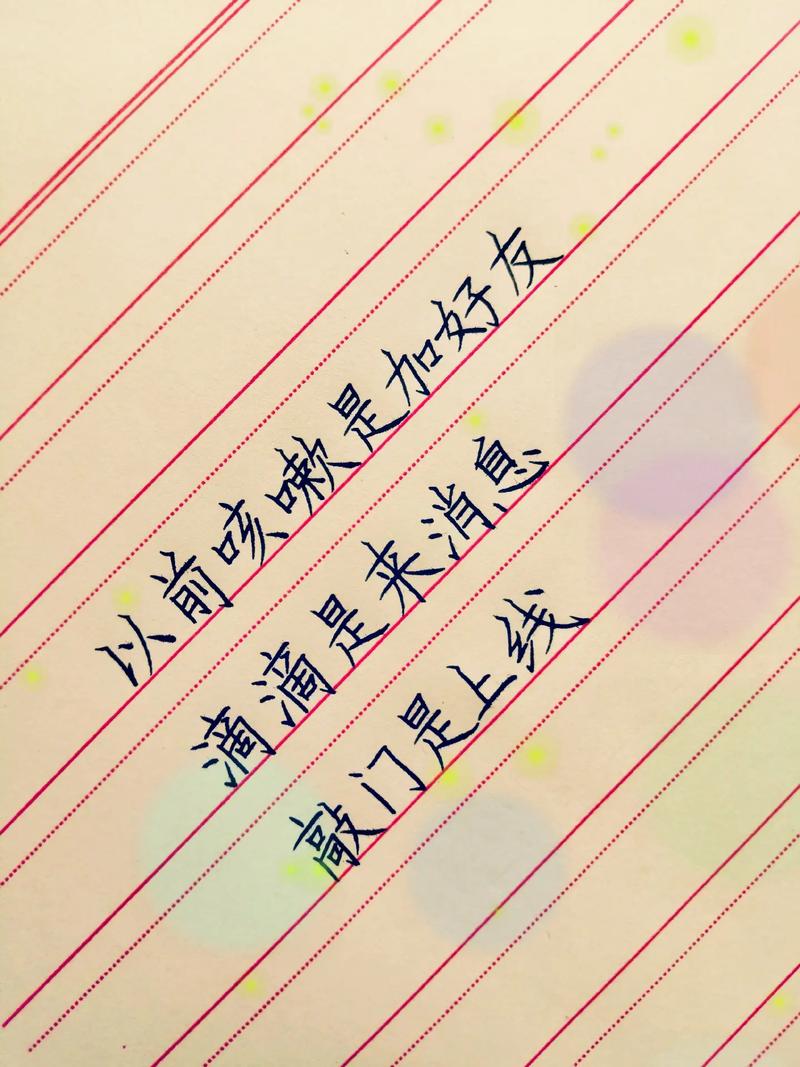 以前咳嗽是加好友
滴滴是来消息
敲门是上线